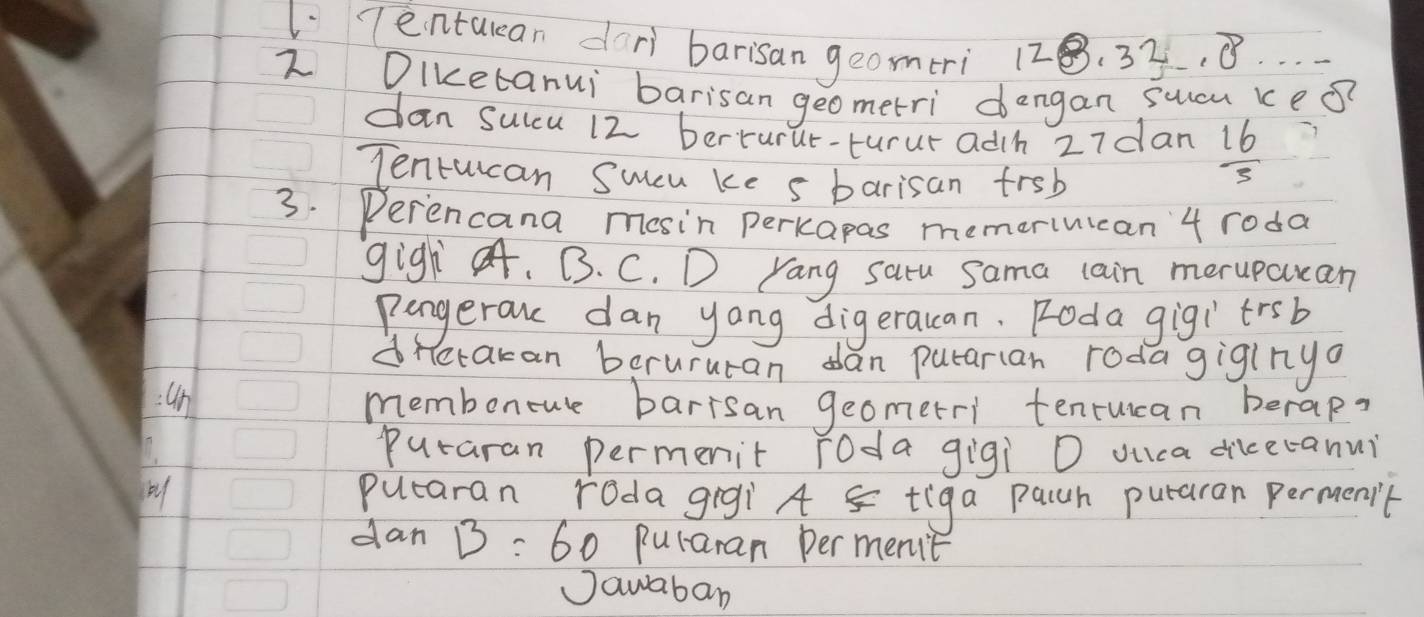 1. Tentukan dari barisan geomtri 128, 32, 8 ....
2 Diketahui barisan geometri dengan suku ke 8
dan suku 12 berturut-turut adlh 27 dan 16/3
Tentukan suku ke 5 barisan trsb
3. Perencana mesin perkapas memerlukan 4 roda
gigi A. B. C. D yang satu sama lain merupakan
Pengerak dan yang digerakan. Roda gigi trsb
diletakan berurutan dan putarian roda giginya
membentuk barisan geometri tentukan berapa
Putaran permenit roda gigi D jika diketahui
putaran roda gigi A tiga puluh putaran permenit
dan B = 60 putaran per menit
Jawaban